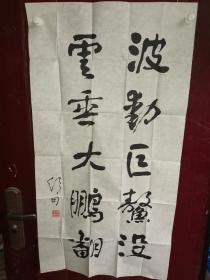 波動巨鼇没
雲垂大鵬翻